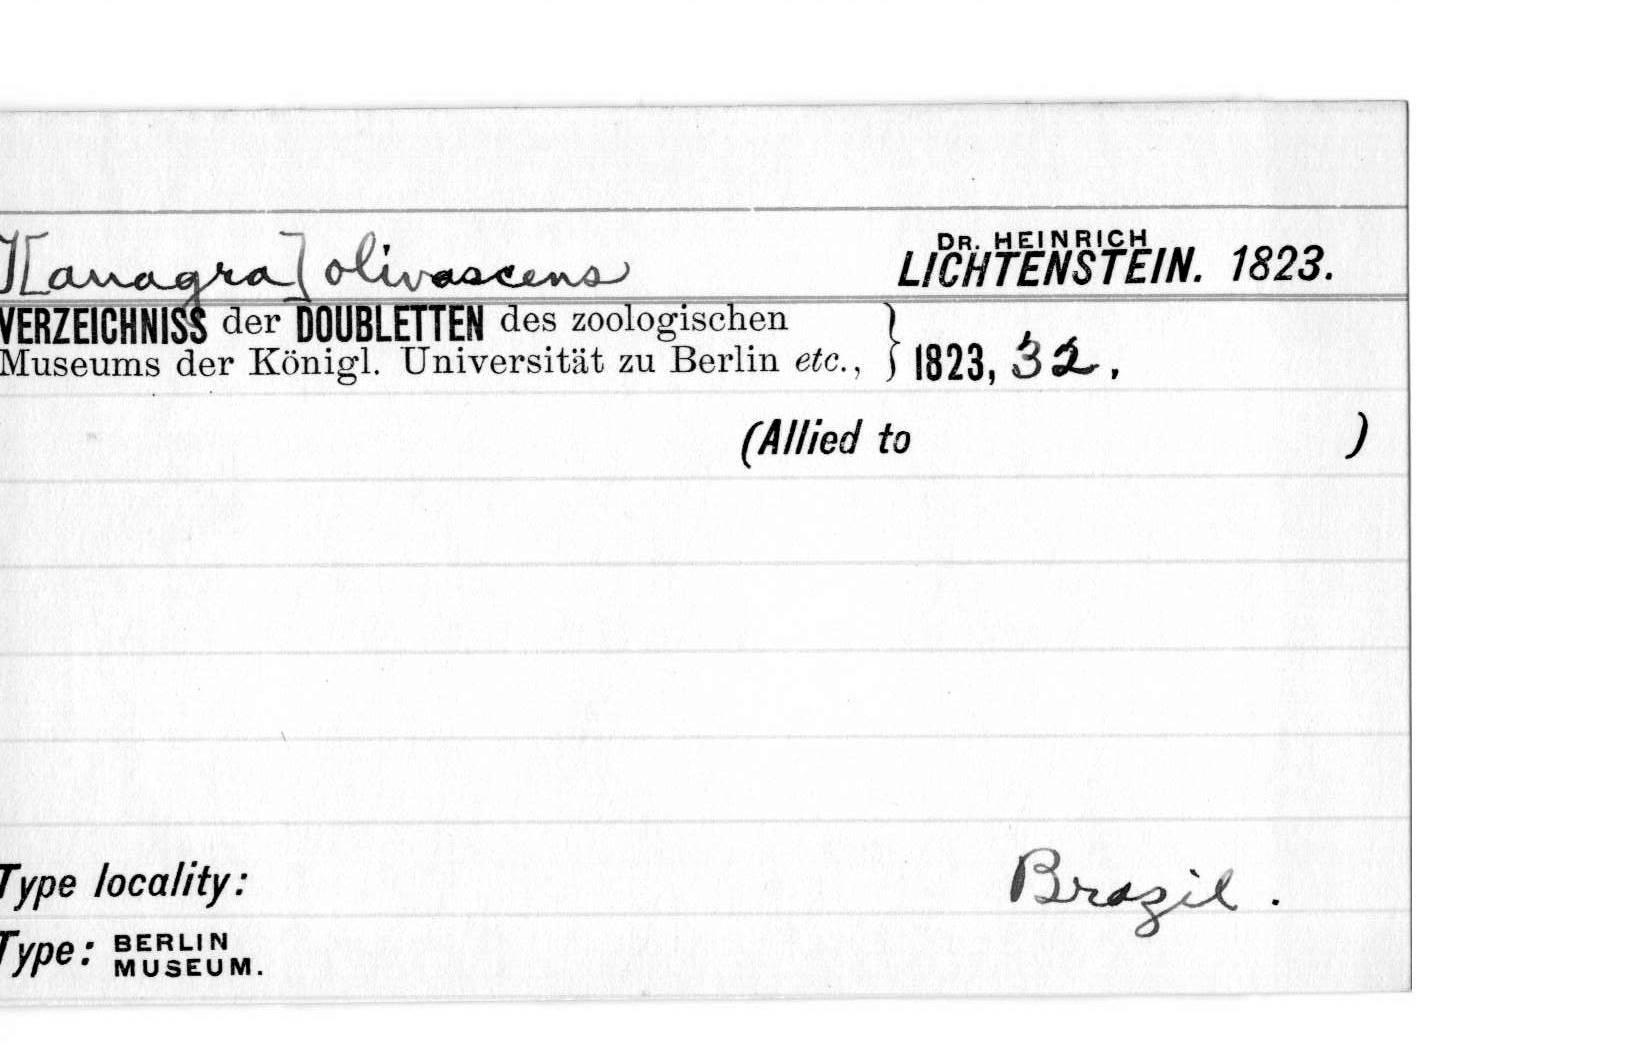 T[anagra] olivascens
DR. HEINRICH
LICHTENSTEIN. 1823.
VERZEICHNISS der DOUBLETTEN des zoologischen
Museums der Königl. Universität zu Berlin etc., } 1823, 32.
(Allied to )
Type locality: Brazil.
Type: BERLIN
MUSEUM.